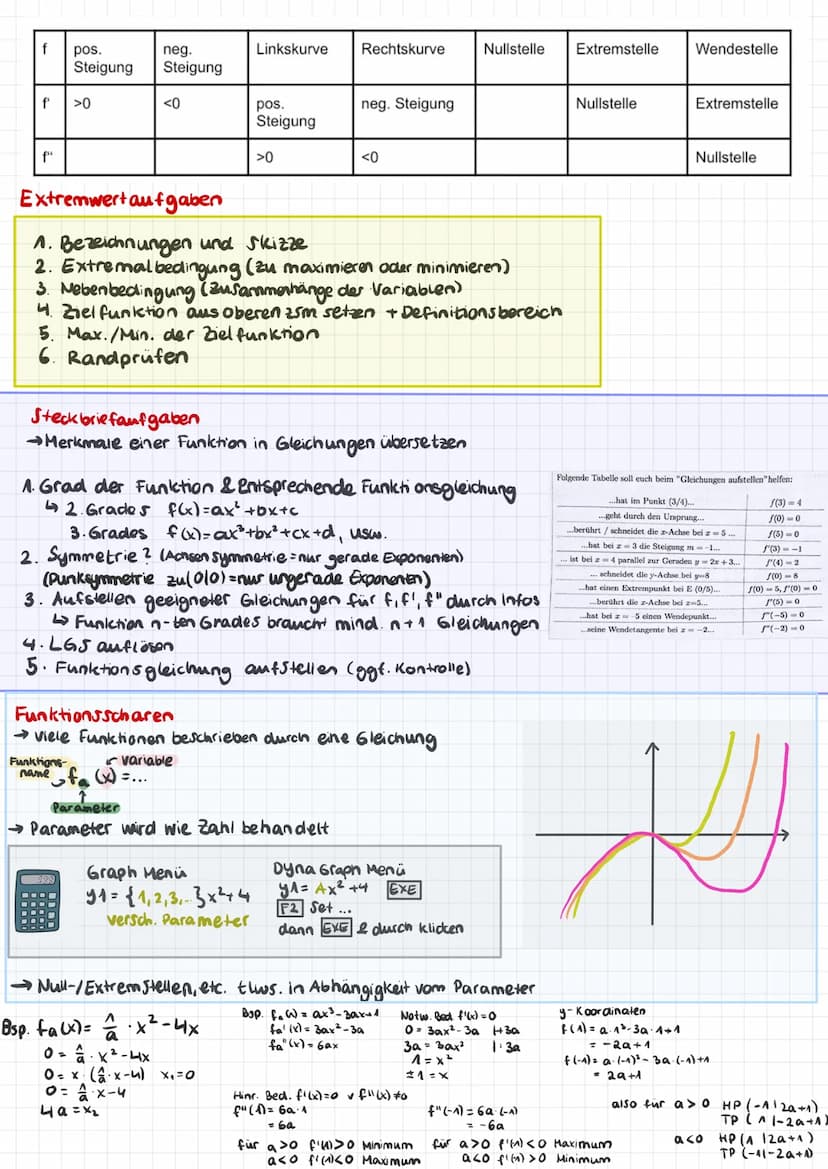 f pos. Steigung neg. Steigung Linkskurve Rechtskurve Nullstelle Extremstelle Wendestelle
f' >0 <0 pos. Steigung neg. Steigung Nullstelle Extremstelle
f'' >0 <0 Nullstelle
Extremwertaufgaben
1. Bezeichnungen und Skizze
2. Extremalbedingung (zu maximieren oder minimieren)
3. Nebenbedingung (Zusammenhänge der Variablen)
4. Zielfunktion aus oberen zsm setzen + Definitionsbereich
5. Max./Min. der Zielfunktion
6. Randprüfen
Steckbriefaufgaben
→ Merkmale einer Funktion in Gleichungen übersetzen
1. Grad der Funktion & Entsprechende Funktionsgleichung
↳ 2. Grades f(x)=ax²+bx+c
3. Grades f(x)=ax³+bx²+cx+d, usw.
2. Symmetrie? (Achsensymmetrie = nur gerade Exponenten)
(Punksymmetrie zu (0|0) = nur ungerade Exponenten)
3. Aufstellen geeigneter Gleichungen für f, f', f'' durch Infos
↳ Funktion n-ten Grades braucht mind. n+1 Gleichungen
4. LGS auflösen
5. Funktionsgleichung aufstellen (ggf. Kontrolle)
Folgende Tabelle soll euch beim "Gleichungen aufstellen" helfen:
...hat im Punkt (3/4)... f(3) = 4
...geht durch den Ursprung... f(0) = 0
...berührt / schneidet die x-Achse bei x = 5 ... f(5) = 0
...hat bei x = 3 die Steigung m = -1... f'(3) = -1
... ist bei x = 4 parallel zur Geraden y = 2x + 3... f'(4) = 2
... schneidet die y-Achse bei y=8 f(0) = 8
...hat einen Extrempunkt bei E (0/5)... f(0) = 5, f'(0) = 0
...berührt die x-Achse bei x=5... f'(5) = 0
...hat bei x = -5 einen Wendepunkt... f''(-5) = 0
...seine Wendetangente bei x = -2... f''(-2) = 0
Funktionsscharen
→ viele Funktionen beschrieben durch eine Gleichung
Funktionsname Variable
fₐ(x)=...
Parameter
→ Parameter wird wie Zahl behandelt
Graph Menü
y1 = {1,2,3,..}x²+4
versch. Parameter
Dyna Graph Menü
y1= Ax²+4 EXE
F2 Set ...
dann EXE & durch klicken
→ Null-/Extremstellen, etc. tlws. in Abhängigkeit vom Parameter
Bsp. fa(x)= 1/a · x²-4x
0 = 1/a · x²-4x
0= x · (1/a · x-4) x₁=0
0= 1/a · x-4
4a = x₂
Bsp. fa(x) = ax³-3ax+1
fa'(x) = 3ax²-3a
fa''(x) = 6ax
Notw. Bed f'(x)=0
0= 3ax²-3a |+3a
3a = 3ax² |:3a
1 = x²
±1 = x
y-Koordinaten
f(1) = a·1³-3a·1+1
= -2a+1
f(-1) = a·(-1)³-3a·(-1)+1
= 2a+1
Hinr. Bed. f'(x)=0 ∨ f''(x)≠0
f''(1) = 6a·1
= 6a
f''(-1) = 6a·(-1)
= -6a
für a>0 f''(1)>0 Minimum
a<0 f''(1)<0 Maximum
für a>0 f''(-1)<0 Maximum
a<0 f''(-1)>0 Minimum
also für a>0 HP(-1|2a+1)
TP(1|-2a+1)
a<0 HP(1|2a+1)
TP(-1|-2a+1)